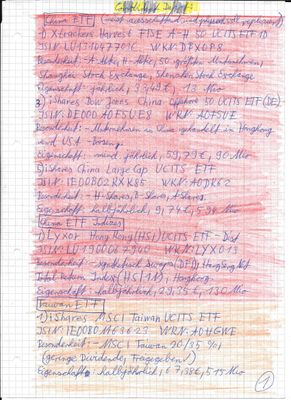 China ETF (meist ausschüttend und physisch repliziert)
1) Xtrackers Harvest FTSE China A-H 50 UCITS ETF 1D
JSIN: WKN: DBX0P8
Besonderheit: - A-Aktie, H-Aktie, 50 größten Unternehmen,
Shanghai Stock Exchange, Shenzhen Stock Exchange
Eigenschaft: jährlich, 13 Mio
3) iShares Dow Jones China Offshore 50 UCITS ETF (DE)
JSIN: DE000A0F5UE8 WKN: A0F5UE
Besonderheit: - Unternehmen in China gehandelt im Hongkong
und USA-Börsen.
Eigenschaft: jährlich, 59,79 €, 90 Mio
5) iShares China Large Cap UCITS ETF
JSIN: IE00B02KXK85 WKN: A0DK62
Besonderheit: - H-Shares, B-Shares, A-Shares
Eigenschaft: halbjährlich, 91,74 €, Mio
China ETF Indizes
1) Lyxor Hong Kong (HSI) UCITS ETF - Dist
JSIN: LU1900067940 WKN: LYX013
Besonderheit: - synthetisch Swaps (DFD), HangSeng Net
Total Return Index (HSI 1N), Hongkong.
Eigenschaft: halbjährlich, 29,35 €, 130 Mio
Taiwan ETF
1) iShares MSCI Taiwan UCITS ETF
JSIN: IE00B0M63623 WKN: A0HGWE
Besonderheit: - MSCI Taiwan 20/35
(geringe Dividende, Fragegeben!)
Eigenschaft: halbjährlich, 67,38 €, 515 Mio
1